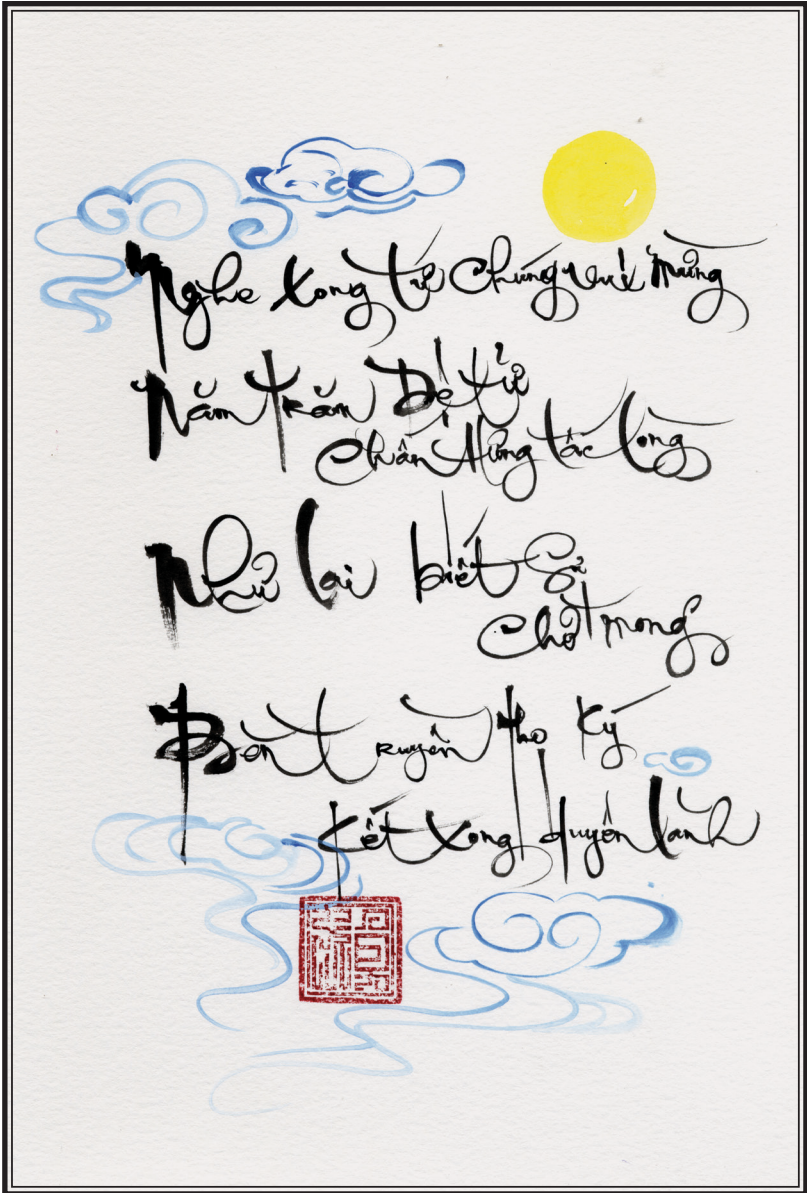 Nghe xong tứ chúng vui mừng
Năm trăm Đệ tử
Chấn Hưng tấc lòng
Như lai biết Sự
Chờ mong
Bèn truyền thọ Ký
Kết xong duyên lành